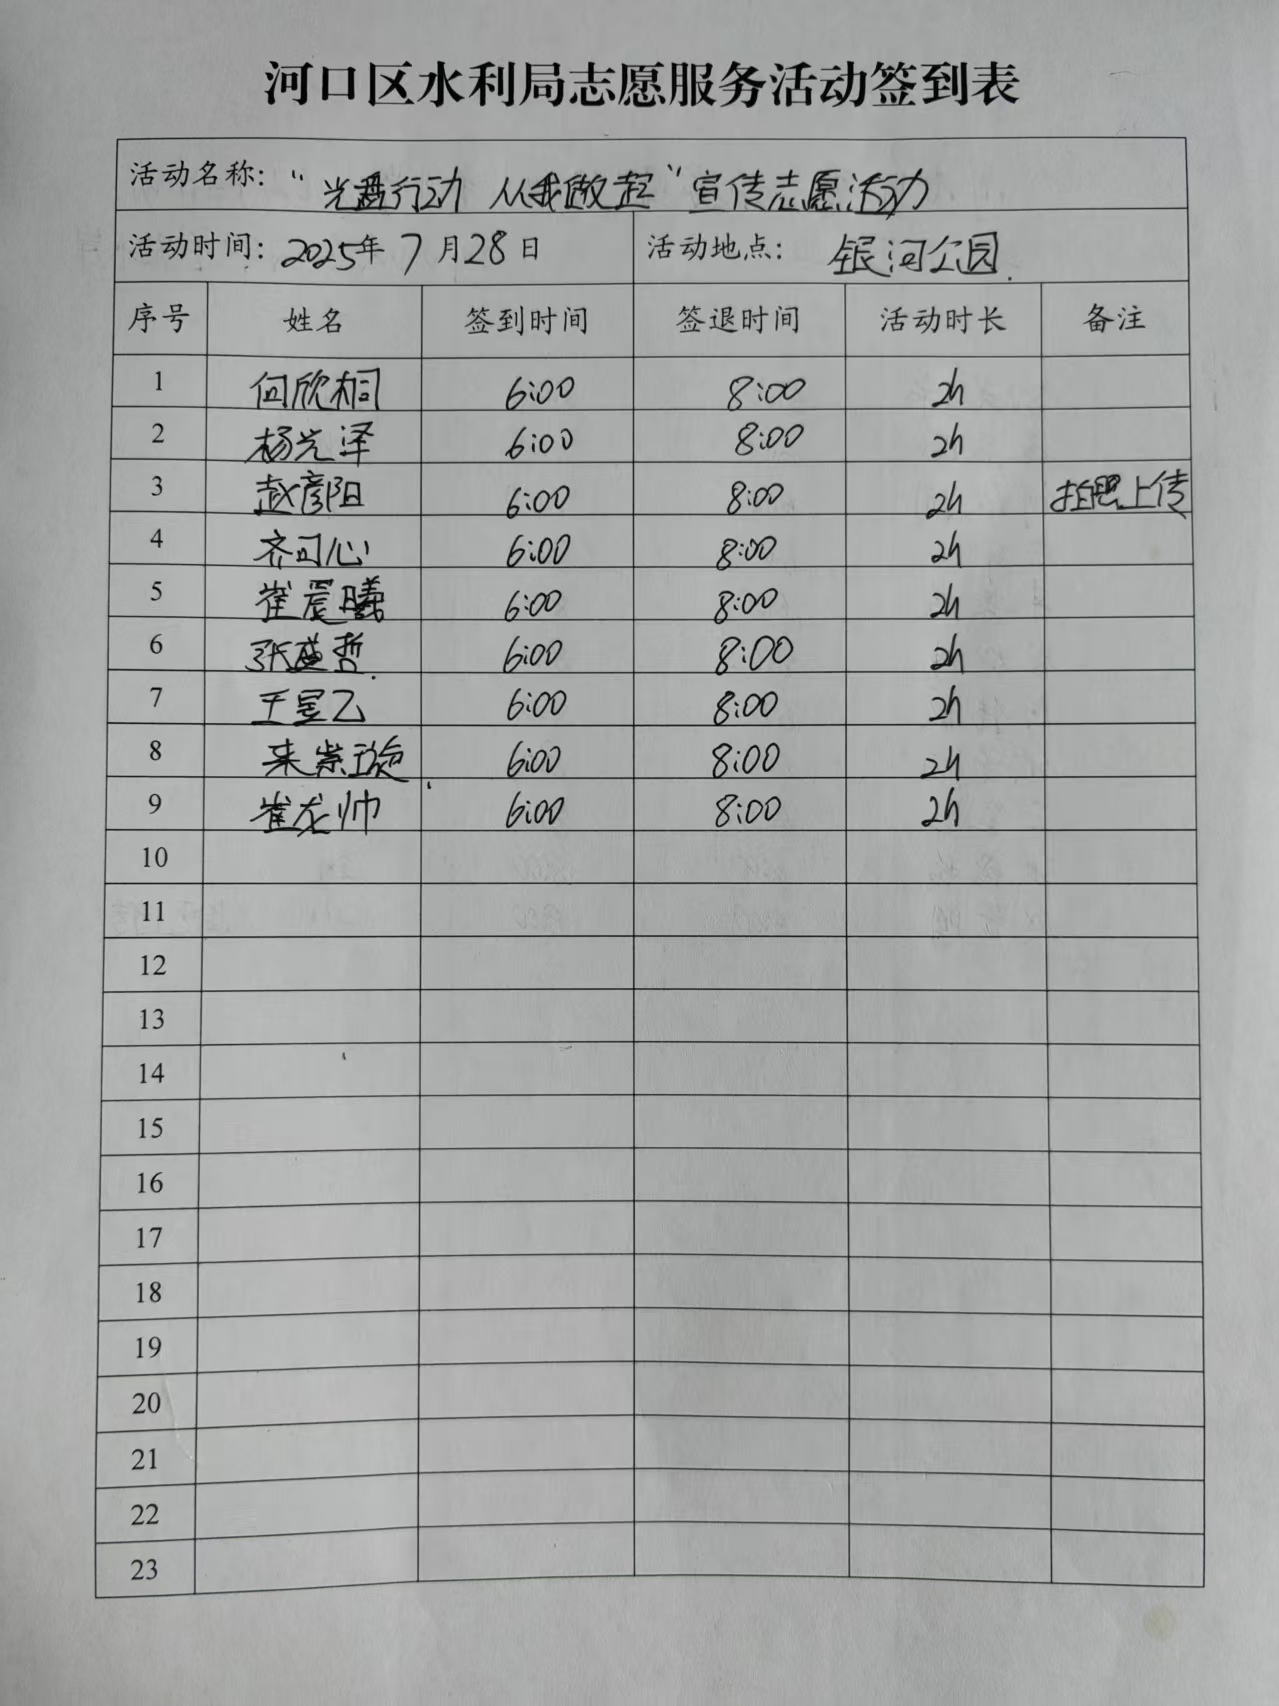 河口区水利局志愿服务活动签到表
活动名称："光盘行动 从我做起"宣传志愿活动
活动时间：2025年7月28日 活动地点：银河公园
序号 姓名 签到时间 签退时间 活动时长 备注
1 何欣桐 6:00 8:00 2h
2 杨光泽 6:00 8:00 2h
3 赵彦阳 6:00 8:00 2h 拍照上传
4 齐可心 6:00 8:00 2h
5 崔晨曦 6:00 8:00 2h
6 张盛哲 6:00 8:00 2h
7 王昱乙 6:00 8:00 2h
8 来紫璇 6:00 8:00 2h
9 崔龙帅 6:00 8:00 2h
10
11
12
13
14
15
16
17
18
19
20
21
22
23